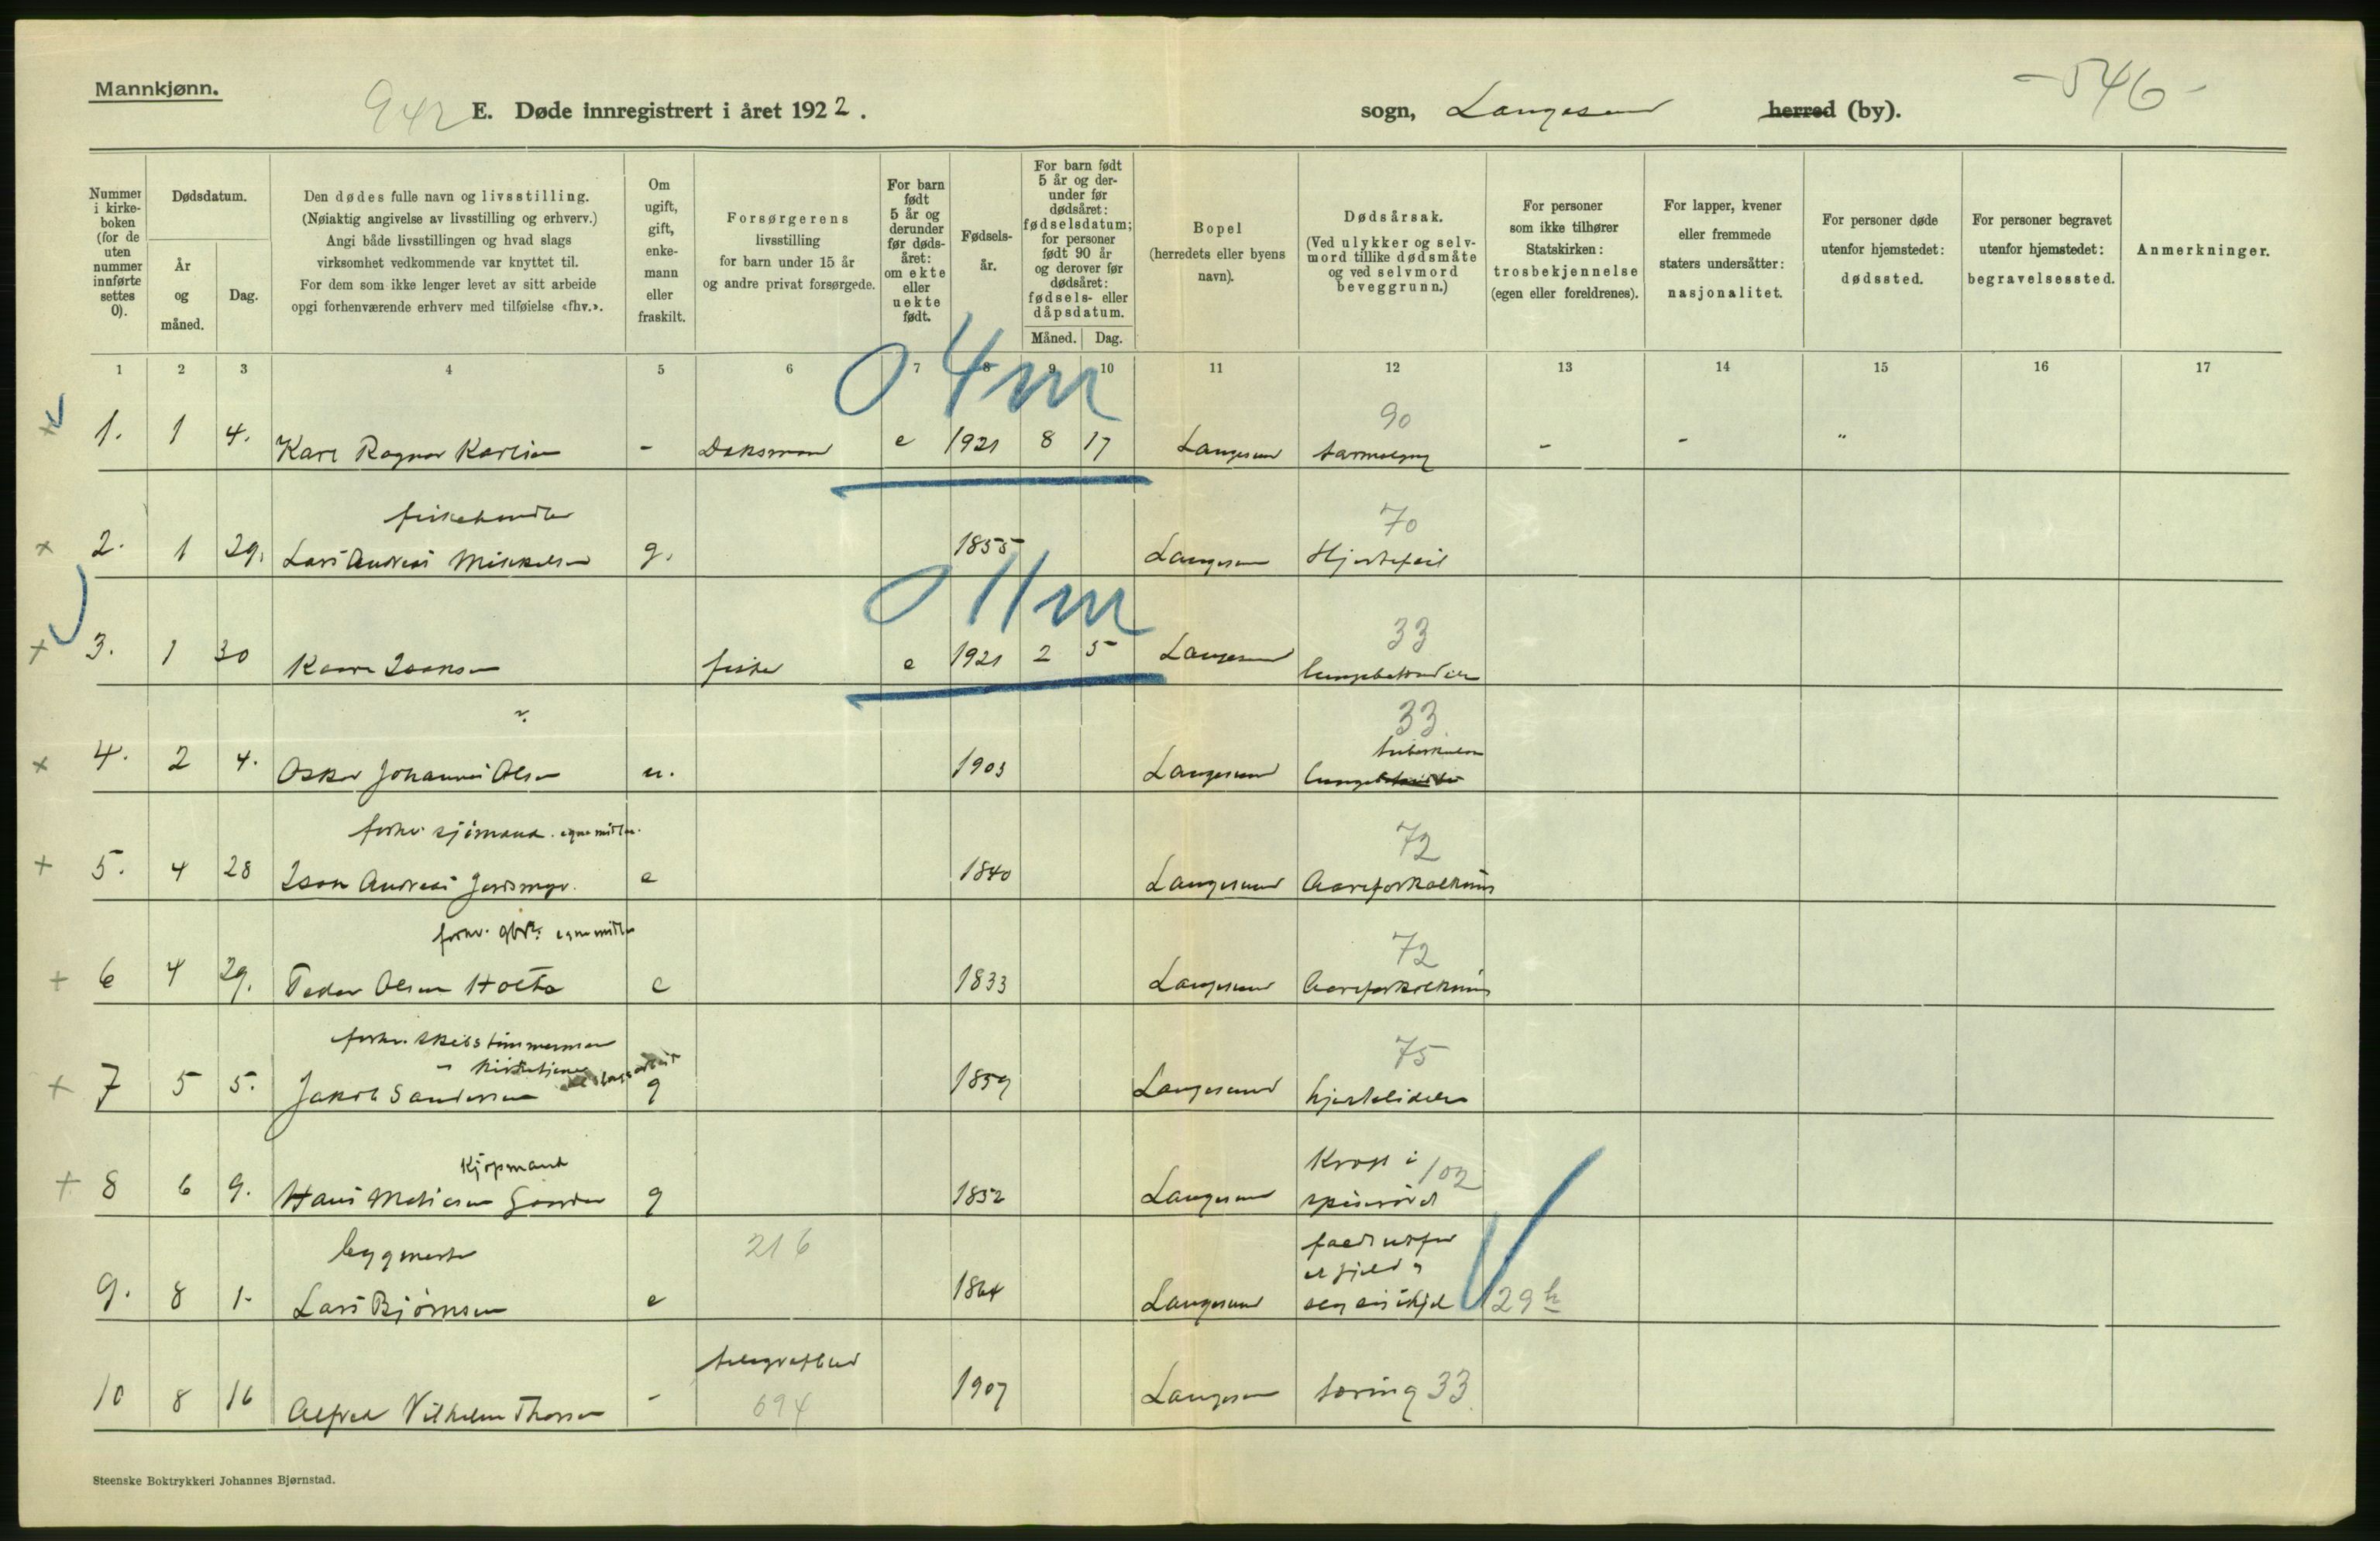 Mannkjønn.
942 E. Døde innregistrert i året 1922. sogn, Langesund herred (by). -546-
Nummer i kirkeboken (for de uten nummer innførte settes 0).
Dødsdatum.
År og måned.
Dag.
Den dødes fulle navn og livsstilling.
(Nøiaktig angivelse av livsstilling og erhverv.)
Angi både livsstillingen og hvad slags
virksomhet vedkommende var knyttet til.
For dem som ikke lenger levet av sitt arbeide
opgi forhenværende erhverv med tilføielse «fhv.».
Om ugift, gift, enkemann eller fraskilt.
Forsørgerens
livsstilling
for barn under 15 år
og andre privat forsørgede.
For barn født 5 år og derunder før dødsåret: om ekte eller uekte født.
Fødselsår.
For barn født 5 år og derunder før dødsåret: fødselsdatum; for personer født 90 år og derover før dødsåret: fødsels- eller dåpsdatum.
Måned. Dag.
Bopel
(herredets eller byens
navn).
Dødsårsak.
(Ved ulykker og selvmord tillike dødsmåte og ved selvmord beveggrunn.)
For personer
som ikke tilhører
Statskirken:
trosbekjennelse
(egen eller foreldrenes).
For lapper, kvener
eller fremmede
staters undersåtter:
nasjonalitet.
For personer døde
utenfor hjemstedet:
dødssted.
For personer begravet
utenfor hjemstedet:
begravelsessted.
Anmerkninger.
1 2 3 4 5 6 7 8 9 10 11 12 13 14 15 16 17
0 4m
90
1. 1 4. Kare Ragnar Karlsen - e 1921 8 17 Langesund - - "
fiskehandler 70
2. 1 29. Lars Andreas Mikkelsen g. 1855 Langesund Hjertefeil
0 11m
33
3. 1 30 Kaare Isaksen fisker e 1921 2 5 Langesund
33
tuberkulose
4. 2 4. Oskar Johannes Olsen u. 1903 Langesund
forhv. sjömand. egne midler. 72
5. 4 28 Isak Andreas e 1840 Langesund Aareforkalkning
forhv. egne midler 72
6 4 29. Peder Olsen Holte e 1833 Langesund Aareforkalkning
forhv. skibstimmermann 75
7 5 5. Jakob Sandersen g 1859 Langesund hjertelidelse
Kjøpmand Kræft i 102
8 6 9. Hans g 1852 Langesund spiserøret
byggmester 216
9. 8 1. Lars Bjørnsen e 1864 Langesund 29 h
telegrafbud
10 8 16 Alfred Vilhelm Thorsen - 694 1907 Langesund tæring 33
Steenske Boktrykkeri Johannes Bjørnstad.